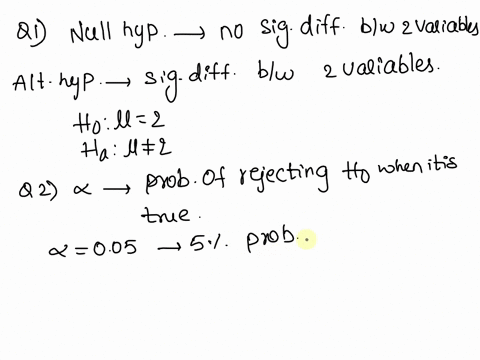 Q1) Null hyp. → no sig. diff. b/w 2 variables
Alt. hyp → sig. diff. b/w 2 variables.
H0: μ = 2
Ha: μ ≠ 2
Q2) α → prob. of rejecting H0 when it is
true.
α = 0.05 → 5% prob.